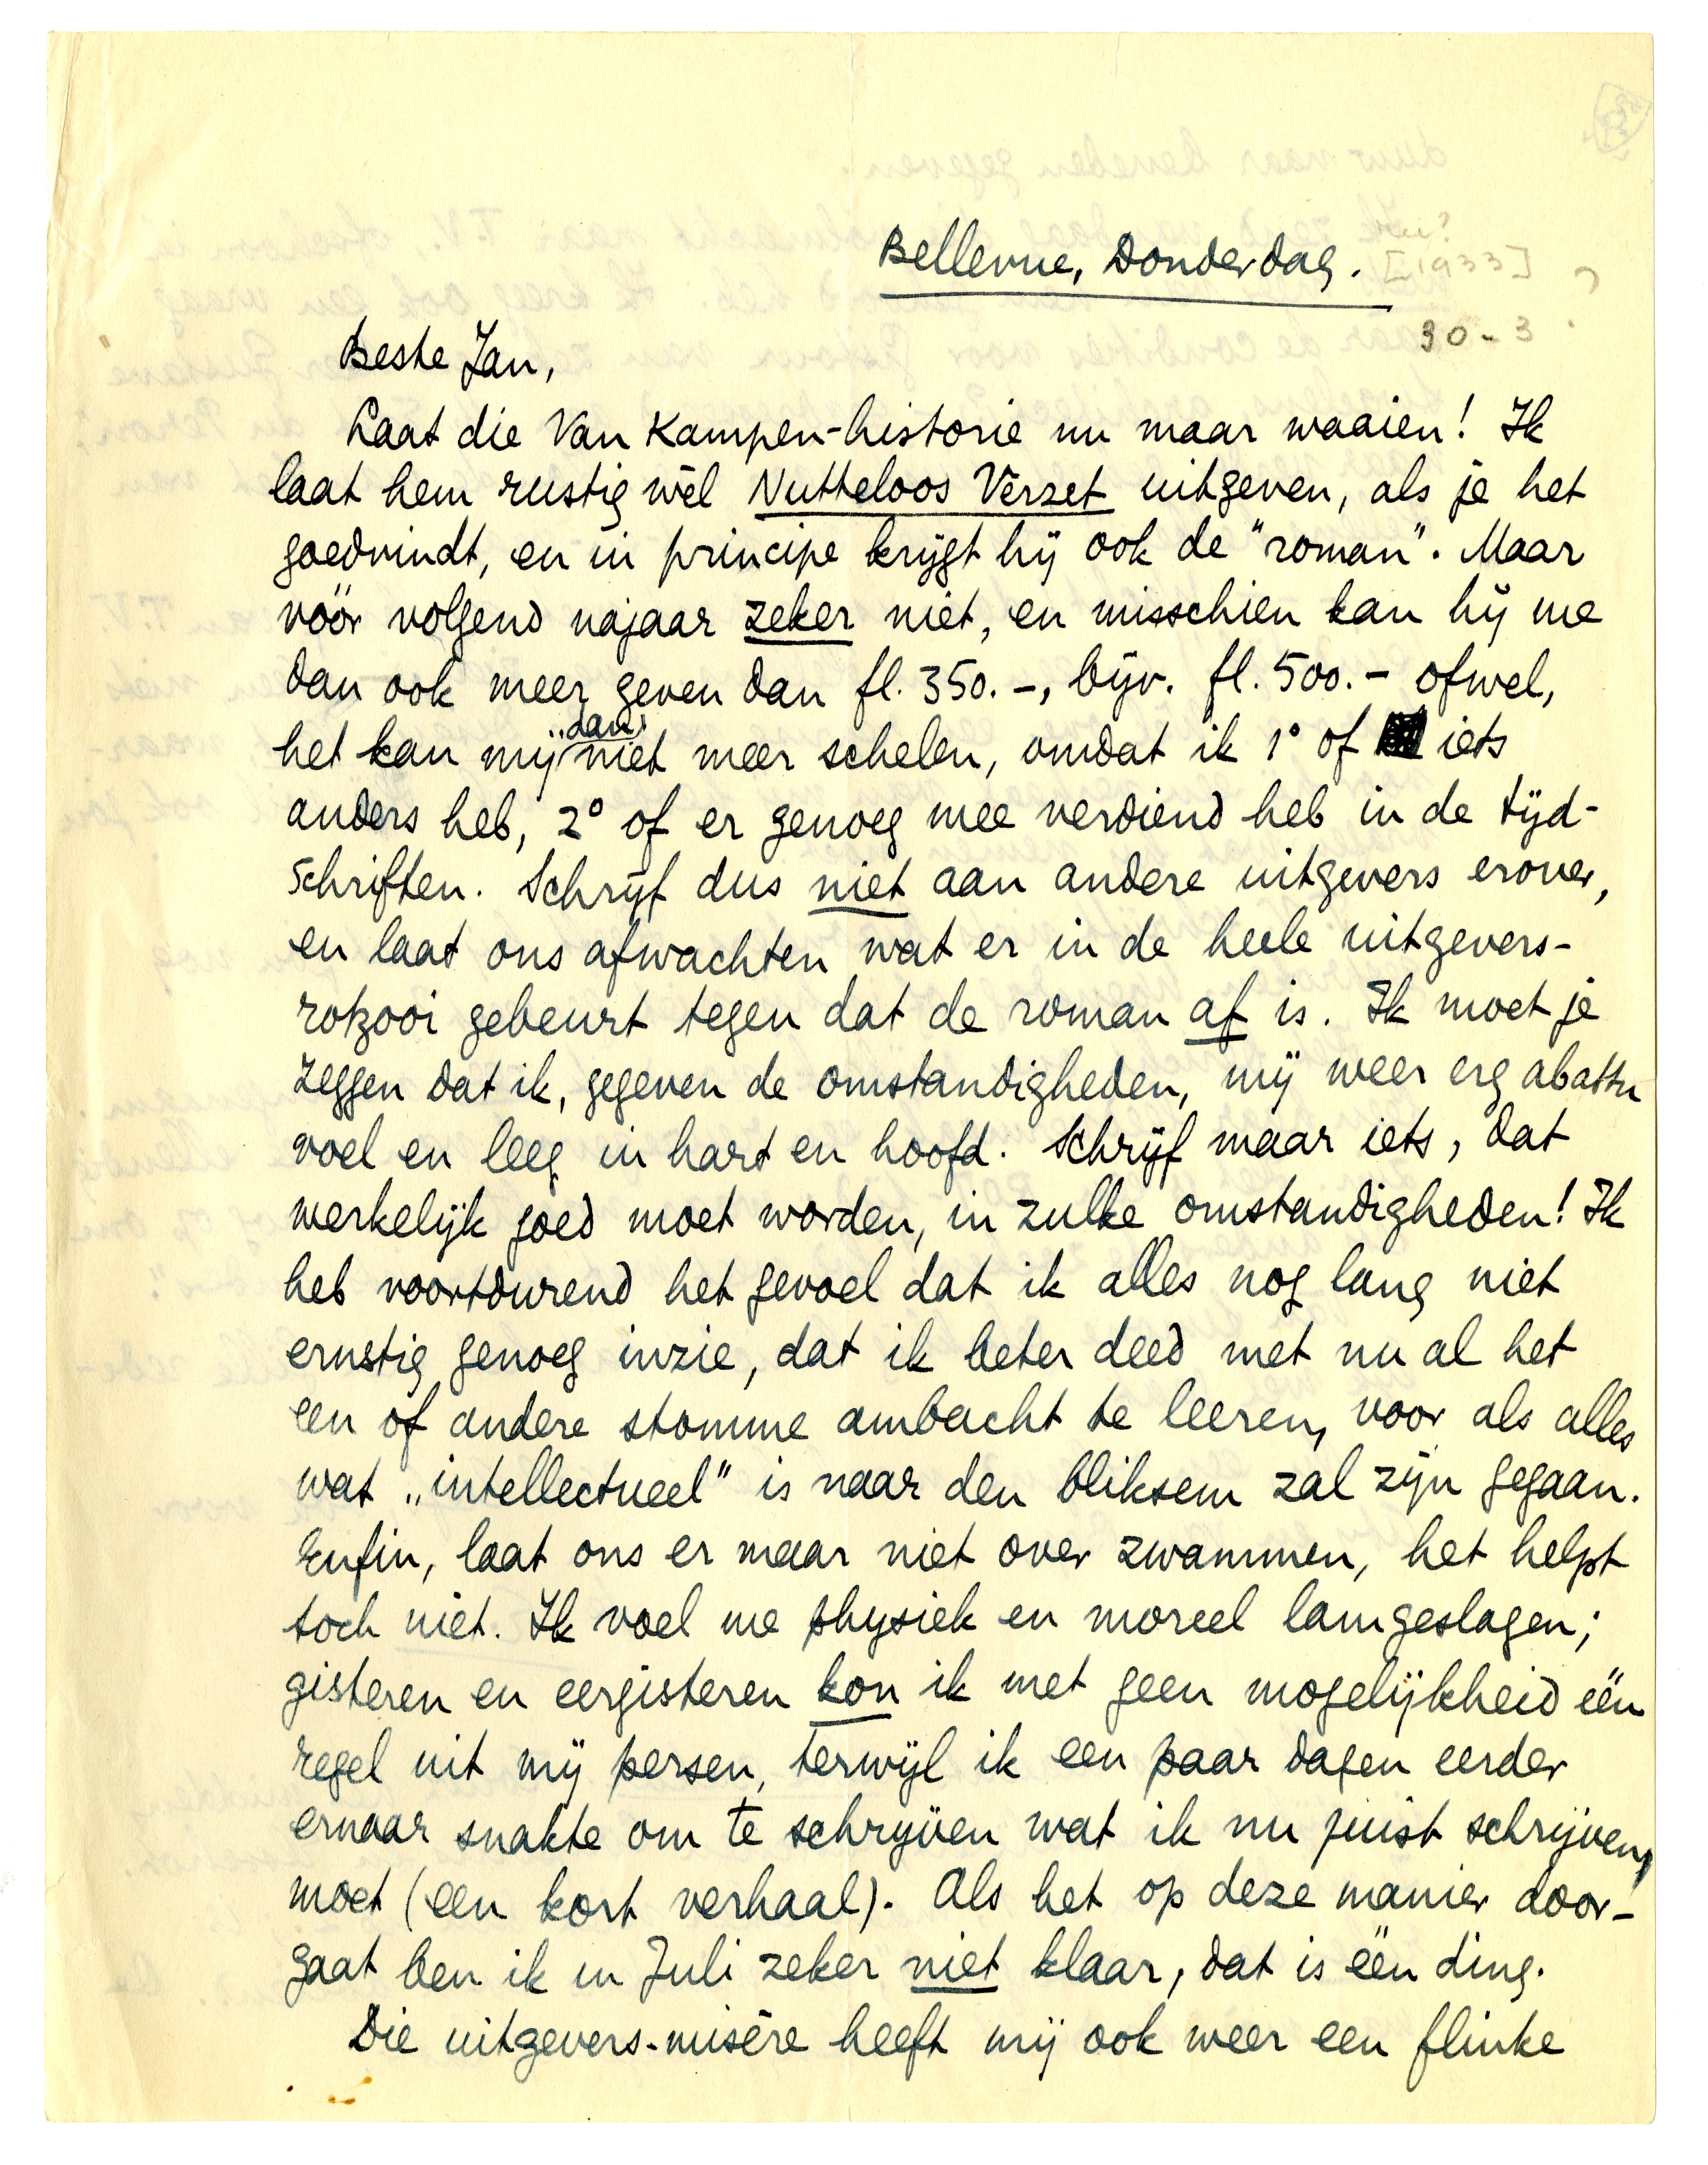 Bellevue, Donderdag.
[1933]
30-3
Beste Jan,
Laat die Van Kampen-historie nu maar waaien! Ik
laat hem rustig wèl Nutteloos Verzet uitgeven, als je het
goedvindt, en in principe krijgt hij ook de "roman". Maar
vóór volgend najaar zeker niet, en misschien kan hij me
dan ook meer geven dan fl. 350.-, bijv. fl. 500.- ofwel,
het kan mij "dan" niet meer schelen, omdat ik 1° of iets
anders heb, 2° of er genoeg mee verdiend heb in de tijd-
schriften. Schrijf dus niet aan andere uitgevers erover,
en laat ons afwachten wat er in de heele uitgevers-
rotzooi gebeurt tegen dat de roman af is. Ik moet je
zeggen dat ik, gegeven de omstandigheden, mij weer erg abattu
voel en leeg in hart en hoofd. Schrijf maar iets, dat
werkelijk goed moet worden, in zulke omstandigheden! Ik
heb voortdurend het gevoel dat ik alles nog lang niet
ernstig genoeg inzie, dat ik beter deed met nu al het
een of andere stomme ambacht te leeren, voor als alles
wat „intellectueel" is naar den bliksem zal zijn gegaan.
Enfin, laat ons er maar niet over zwammen, het helpt
toch niet. Ik voel me physiek en moreel lamgeslagen;
gisteren en eergisteren kon ik met geen mogelijkheid één
regel uit mij persen, terwijl ik een paar dagen eerder
ernaar snakte om te schrijven wat ik nu juist schrijven
moet (een kort verhaal). Als het op deze manier door-
gaat ben ik in Juli zeker niet klaar, dat is één ding.
Die uitgevers-misère heeft mij ook weer een flinke